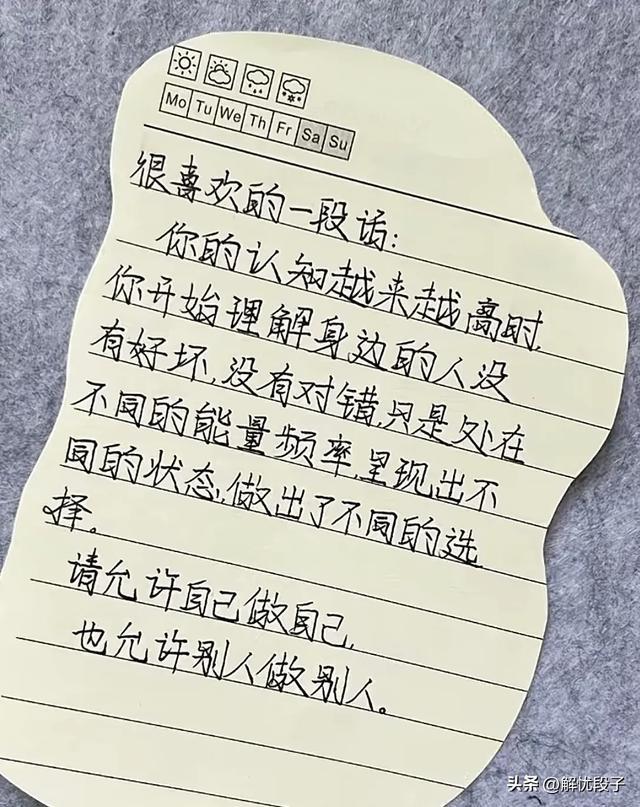 Mo Tu We Th Fr Sa Su
很喜欢的一段话:
你的认知越来越高时,
你开始理解身边的人没
有好坏,没有对错,只是处在
不同的能量频率,呈现出不
同的状态,做出了不同的选
择。
请允许自己做自己,
也允许别人做别人。
头条 @解忧段子